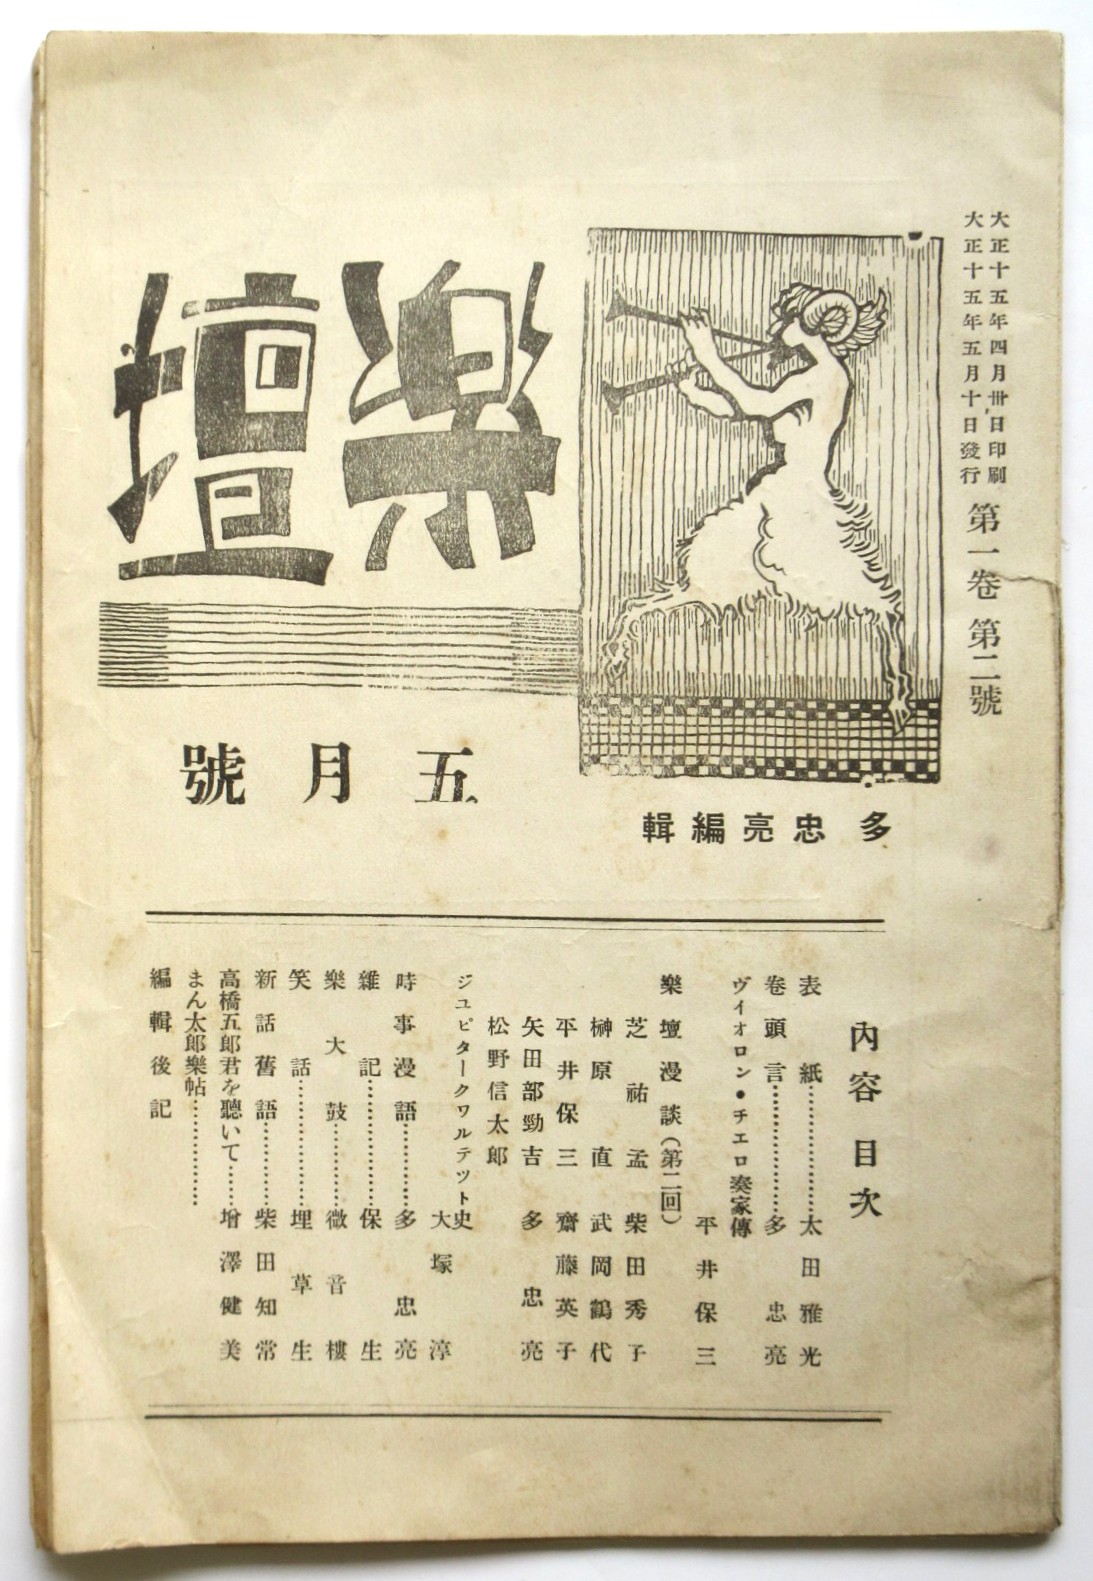 大正十五年四月卅日印刷
大正十五年五月十日發行
第一卷 第二號
樂壇
五月號
多忠亮編輯
內容目次
表紙……………太田雅光
卷頭言……………多忠亮
ヴィオロン・チエロ奏家傳
平井保三
樂壇漫談(第二回)
芝祐孟 柴田秀子
榊原直 武岡鶴代
平井保三 齋藤英子
矢田部勁吉 多忠亮
松野信太郎
ジユピタークワルテツト史
大塚淳
時事漫語……………多忠亮
雜記……………保生
樂大鼓……………微音樓
笑話……………埋草生
新話舊語……………柴田知常
高橋五郎君を聽いて……增澤健美
まん太郎樂帖……………
編輯後記